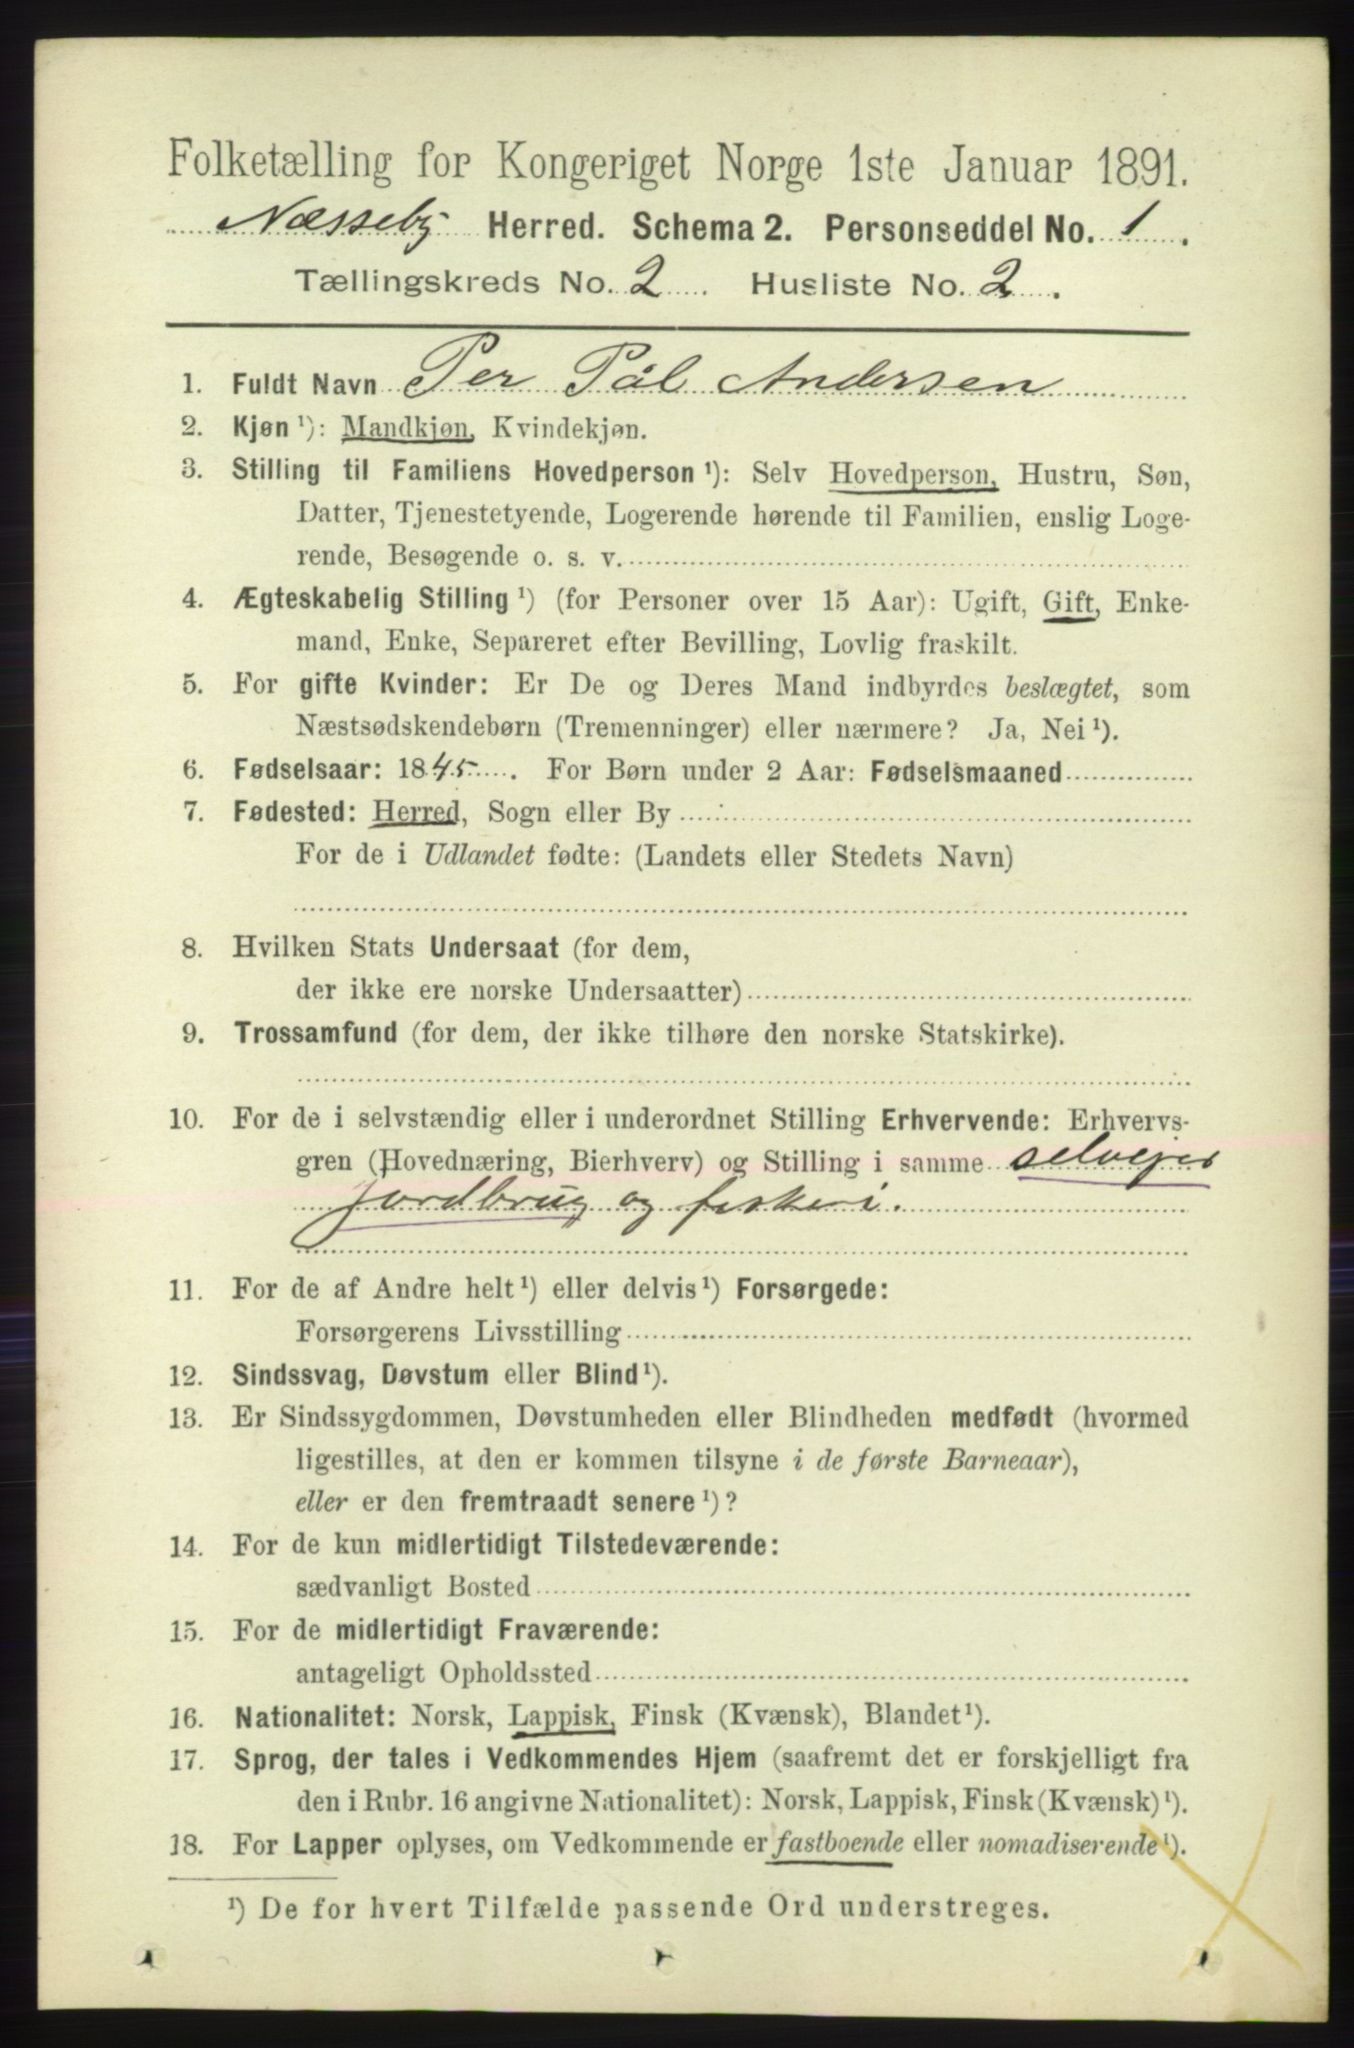 Folketælling for Kongeriget Norge 1ste Januar 1891.
Næsseby Herred. Schema 2. Personseddel No. 1.
Tællingskreds No. 2. Husliste No. 2.
1. Fuldt Navn Per Pål Andersen
2. Kjøn¹): Mandkjøn, Kvindekjøn.
3. Stilling til Familiens Hovedperson¹): Selv Hovedperson, Hustru, Søn,
Datter, Tjenestetyende, Logerende hørende til Familien, enslig Loge-
rende, Besøgende o. s. v.
4. Ægteskabelig Stilling¹) (for Personer over 15 Aar): Ugift, Gift, Enke-
mand, Enke, Separeret efter Bevilling, Lovlig fraskilt.
5. For gifte Kvinder: Er De og Deres Mand indbyrdes beslægtet, som
Næstsødskendebørn (Tremenninger) eller nærmere? Ja, Nei¹).
6. Fødselsaar: 1845. For Børn under 2 Aar: Fødselsmaaned
7. Fødested: Herred, Sogn eller By
For de i Udlandet fødte: (Landets eller Stedets Navn)
8. Hvilken Stats Undersaat (for dem,
der ikke ere norske Undersaatter)
9. Trossamfund (for dem, der ikke tilhøre den norske Statskirke).
10. For de i selvstændig eller i underordnet Stilling Erhvervende: Erhvervs-
gren (Hovednæring, Bierhverv) og Stilling i samme selvejer
Jordbrug og fiskeri.
11. For de af Andre helt¹) eller delvis¹) Forsørgede:
Forsørgerens Livsstilling
12. Sindssvag, Døvstum eller Blind¹).
13. Er Sindssygdommen, Døvstumheden eller Blindheden medfødt (hvormed
ligestilles, at den er kommen tilsyne i de første Barneaar),
eller er den fremtraadt senere¹)?
14. For de kun midlertidigt Tilstedeværende:
sædvanligt Bosted
15. For de midlertidigt Fraværende:
antageligt Opholdssted
16. Nationalitet: Norsk, Lappisk, Finsk (Kvænsk), Blandet¹).
17. Sprog, der tales i Vedkommendes Hjem (saafremt det er forskjelligt fra
den i Rubr. 16 angivne Nationalitet): Norsk, Lappisk, Finsk (Kvænsk)¹).
18. For Lapper oplyses, om Vedkommende er fastboende eller nomadiserende¹).
¹) De for hvert Tilfælde passende Ord understreges.